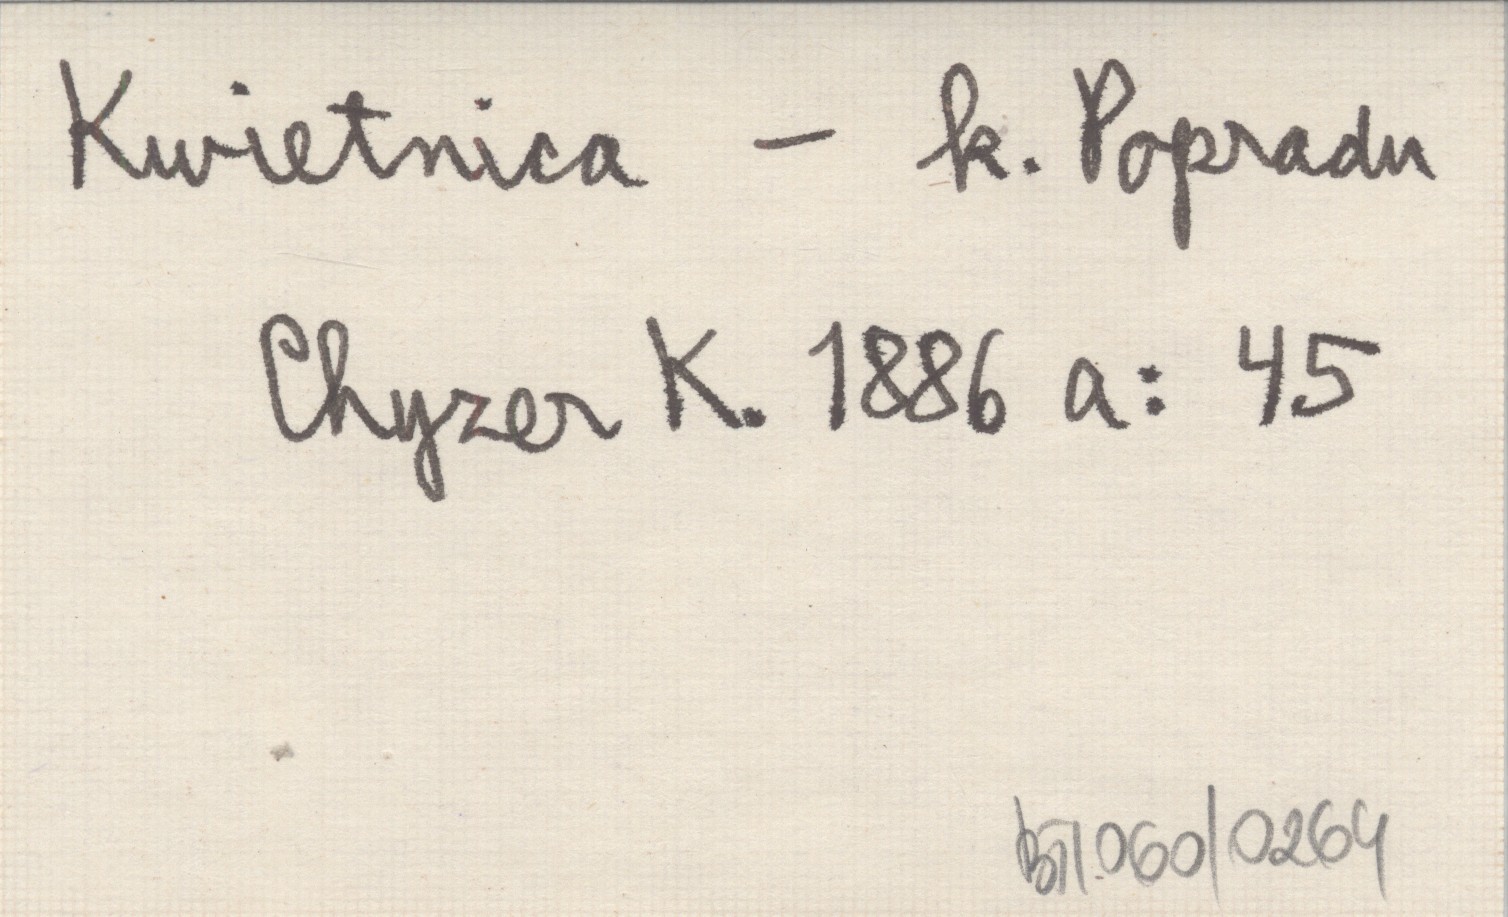 Kwietnica - k. Popradu
Chyzer K. 1886 a: 45
/060/0264